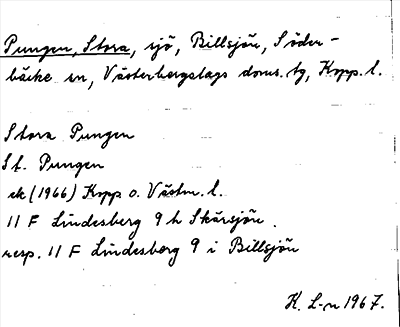 Pungen, Stora, sjö, Billsjön, Söder-
bäcke sn, Västerbergslags doms. tg, Kopp. l.
Stora Pungen
St. Pungen
ek (1966) Kopp o. Västm. l.
11 F Lindesberg 9 h Skärsjön.
resp. 11 F Lindesberg 9 i Billsjön
K. L-n 1967.